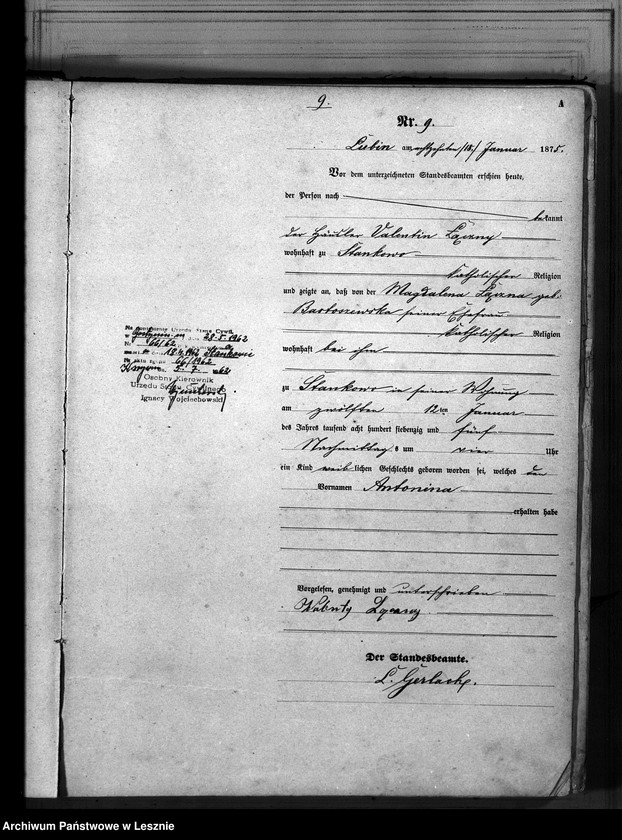 9.
A
Nr. 9.
Lubin am achtzehnten /18./ Januar 1875.
Vor dem unterzeichneten Standesbeamten erschien heute,
der Person nach
bekannt
der Häusler Valentin
wohnhaft zu Stankowo
katholischer Religion
und zeigte an, daß von der Magdalena geb.
Bartoszewska seiner Ehefrau
katholischer Religion
wohnhaft bei ihm
zu Stankowo in seiner Wohnung
am zwölften 12ten Januar
des Jahres tausend acht hundert siebenzig und fünf
Nachmittags um vier Uhr
ein Kind weiblichen Geschlechts geboren worden sei, welches den
Vornamen Antonina
erhalten habe
Vorgelesen, genehmigt und unterschrieben
Der Standesbeamte.
L. Gerlach.
Urzędu Stanu Cywil.
29.5.1962
66/62
Stankowo
66/1962
5. 7. 62
Osobny Kierownik
Urzędu Stanu Cywilnego
Ignacy Wojciechowski
Archiwum Państwowe w Lesznie